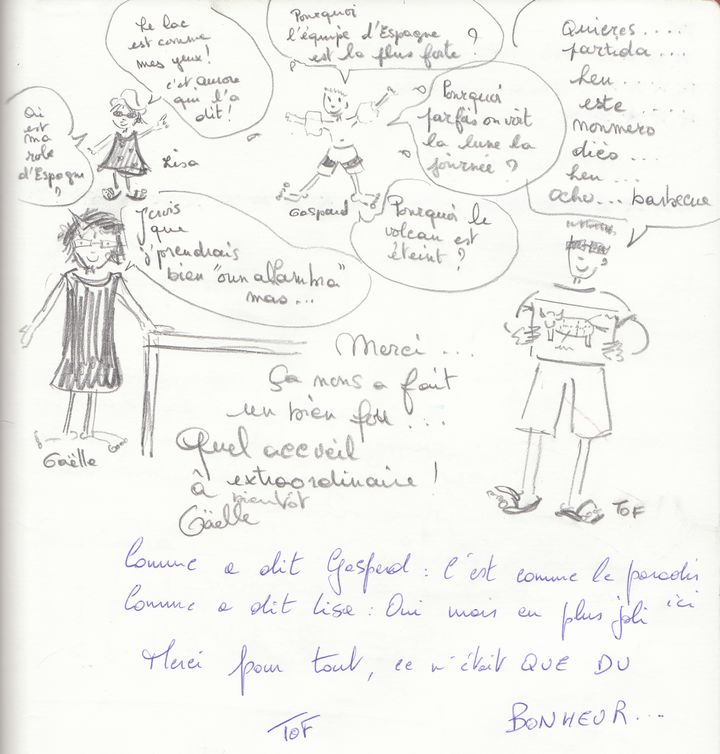 Le lac
est comme
mes yeux !
c'est Aurore
qui l'a
dit !
Où
est
ma
robe
d'Espagne
?
Lisa
Pourquoi
l'équipe d'Espagne
est la plus forte ?
Pourquoi
parfois on voit
la lune la
journée ?
Pourquoi le
volcan est
éteint ?
Gaspard
Quieres ....
partida ....
heu .......
este ......
nonmero
dièo ....
heu ....
acho... barbecue
J'crois
que
j'prendrais
bien "oun alhambra"
mas ...
Gaëlle
TOF
Merci ...
Ça nous a fait
un bien fou ...
Quel accueil
extraordinaire !
à bientôt
Gaëlle
Comme a dit Gaspard : C'est comme le paradis
Comme a dit Lisa : Oui mais en plus joli ici
Merci pour tout, ce n'était QUE DU
BONHEUR...
TOF